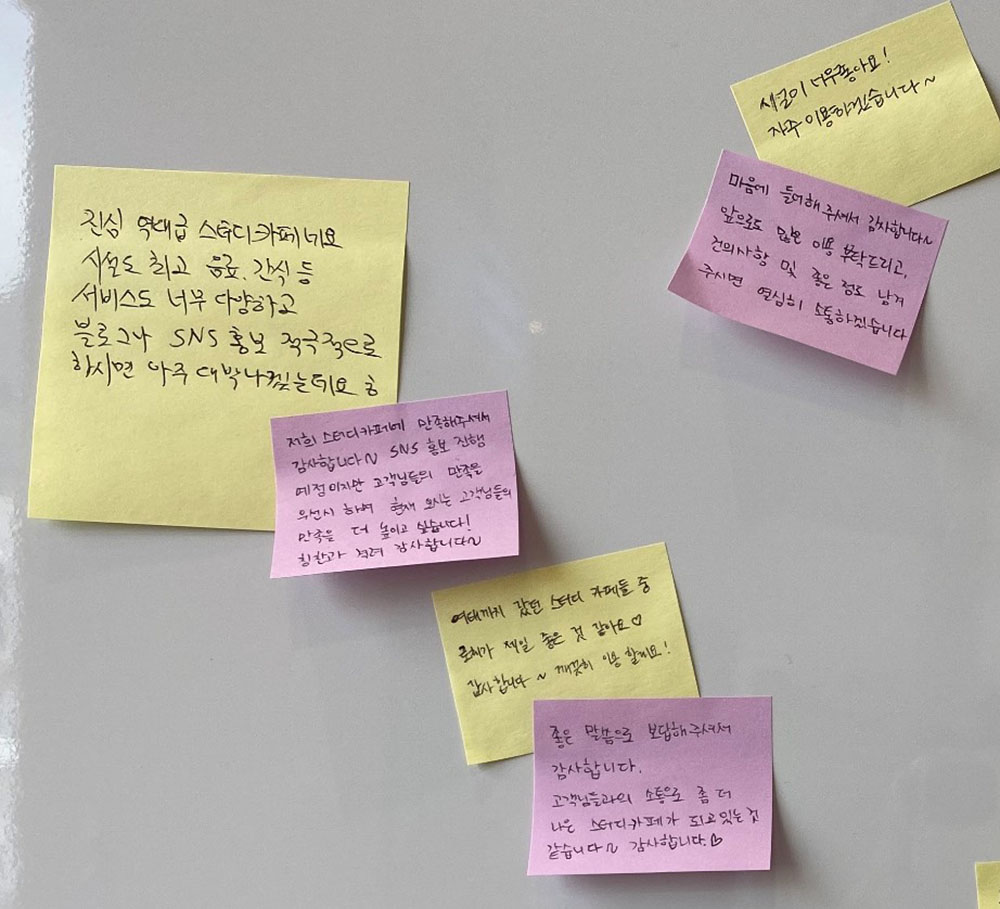 진심 역대급 스터디카페네요
시설도 최고 음료, 간식 등
서비스도 너무 다양하고
블로그나 SNS 홍보 적극적으로
하시면 아주 대박나겠는데요 ㅎ
저희 스터디카페에 만족해주셔서
감사합니다~ SNS 홍보 진행
예정이지만 고객님들의 만족을
우선시 하며 현재 오시는 고객님들의
만족을 더 높이고 싶습니다!
칭찬과 격려 감사합니다~
시설이 너무좋아요!
자주 이용하겠습니다~
마음에 들어해 주셔서 감사합니다~
앞으로도 많은 이용 부탁드리고,
건의사항 및 좋은 점도 남겨
주시면 열심히 소통하겠습니다
여태까지 갔던 스터디 카페들 중
제일 좋은 것 같아요♡
감사합니다~ 깨끗히 이용 할게요!
좋은 말씀으로 보답해주셔서
감사합니다.
고객님들과의 소통으로 좀 더
나은 스터디카페가 되고있는것
같습니다~ 감사합니다.♡